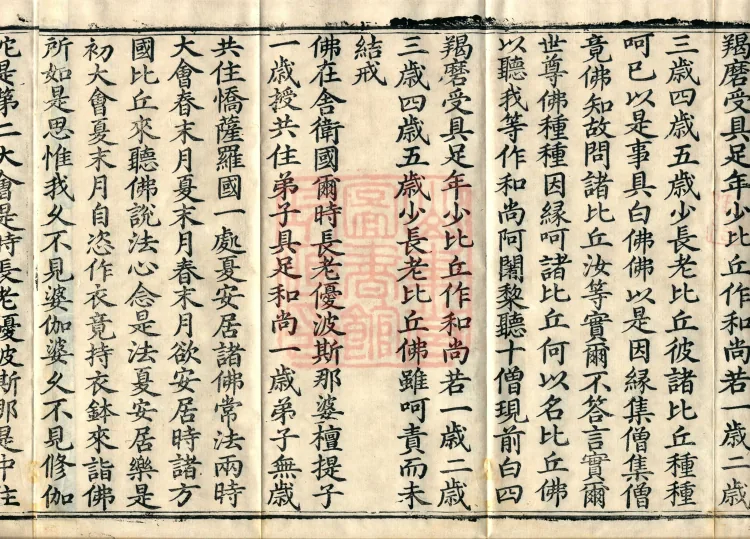 羯磨受具足年少比丘作和尚若一歳二歳
三歳四歳五歳少長老比丘彼諸比丘種種
呵已以是事具白佛佛以是因縁集僧集僧
竟佛知故問諸比丘汝等實爾不答言實爾
世尊佛種種因縁呵諸比丘何以名比丘佛
以聽我等作和尚阿闍黎聽十僧現前白四
羯磨受具足年少比丘作和尚若一歳二歳
三歳四歳五歳少長老比丘佛雖呵責而未
結戒
佛在舍衛國爾時長老優波斯那婆檀提子
一歳授共住弟子具足和尚一歳弟子無歳
共住憍薩羅國一處夏安居諸佛常法兩時
大會春末月夏末月春末月欲安居時諸方
國比丘來聽佛說法心念是法夏安居樂是
初大會夏末月自恣作衣竟持衣鉢來詣佛
所如是思惟我久不見婆伽婆久不見修伽
陀是第二大會是時長老優波斯那是中住